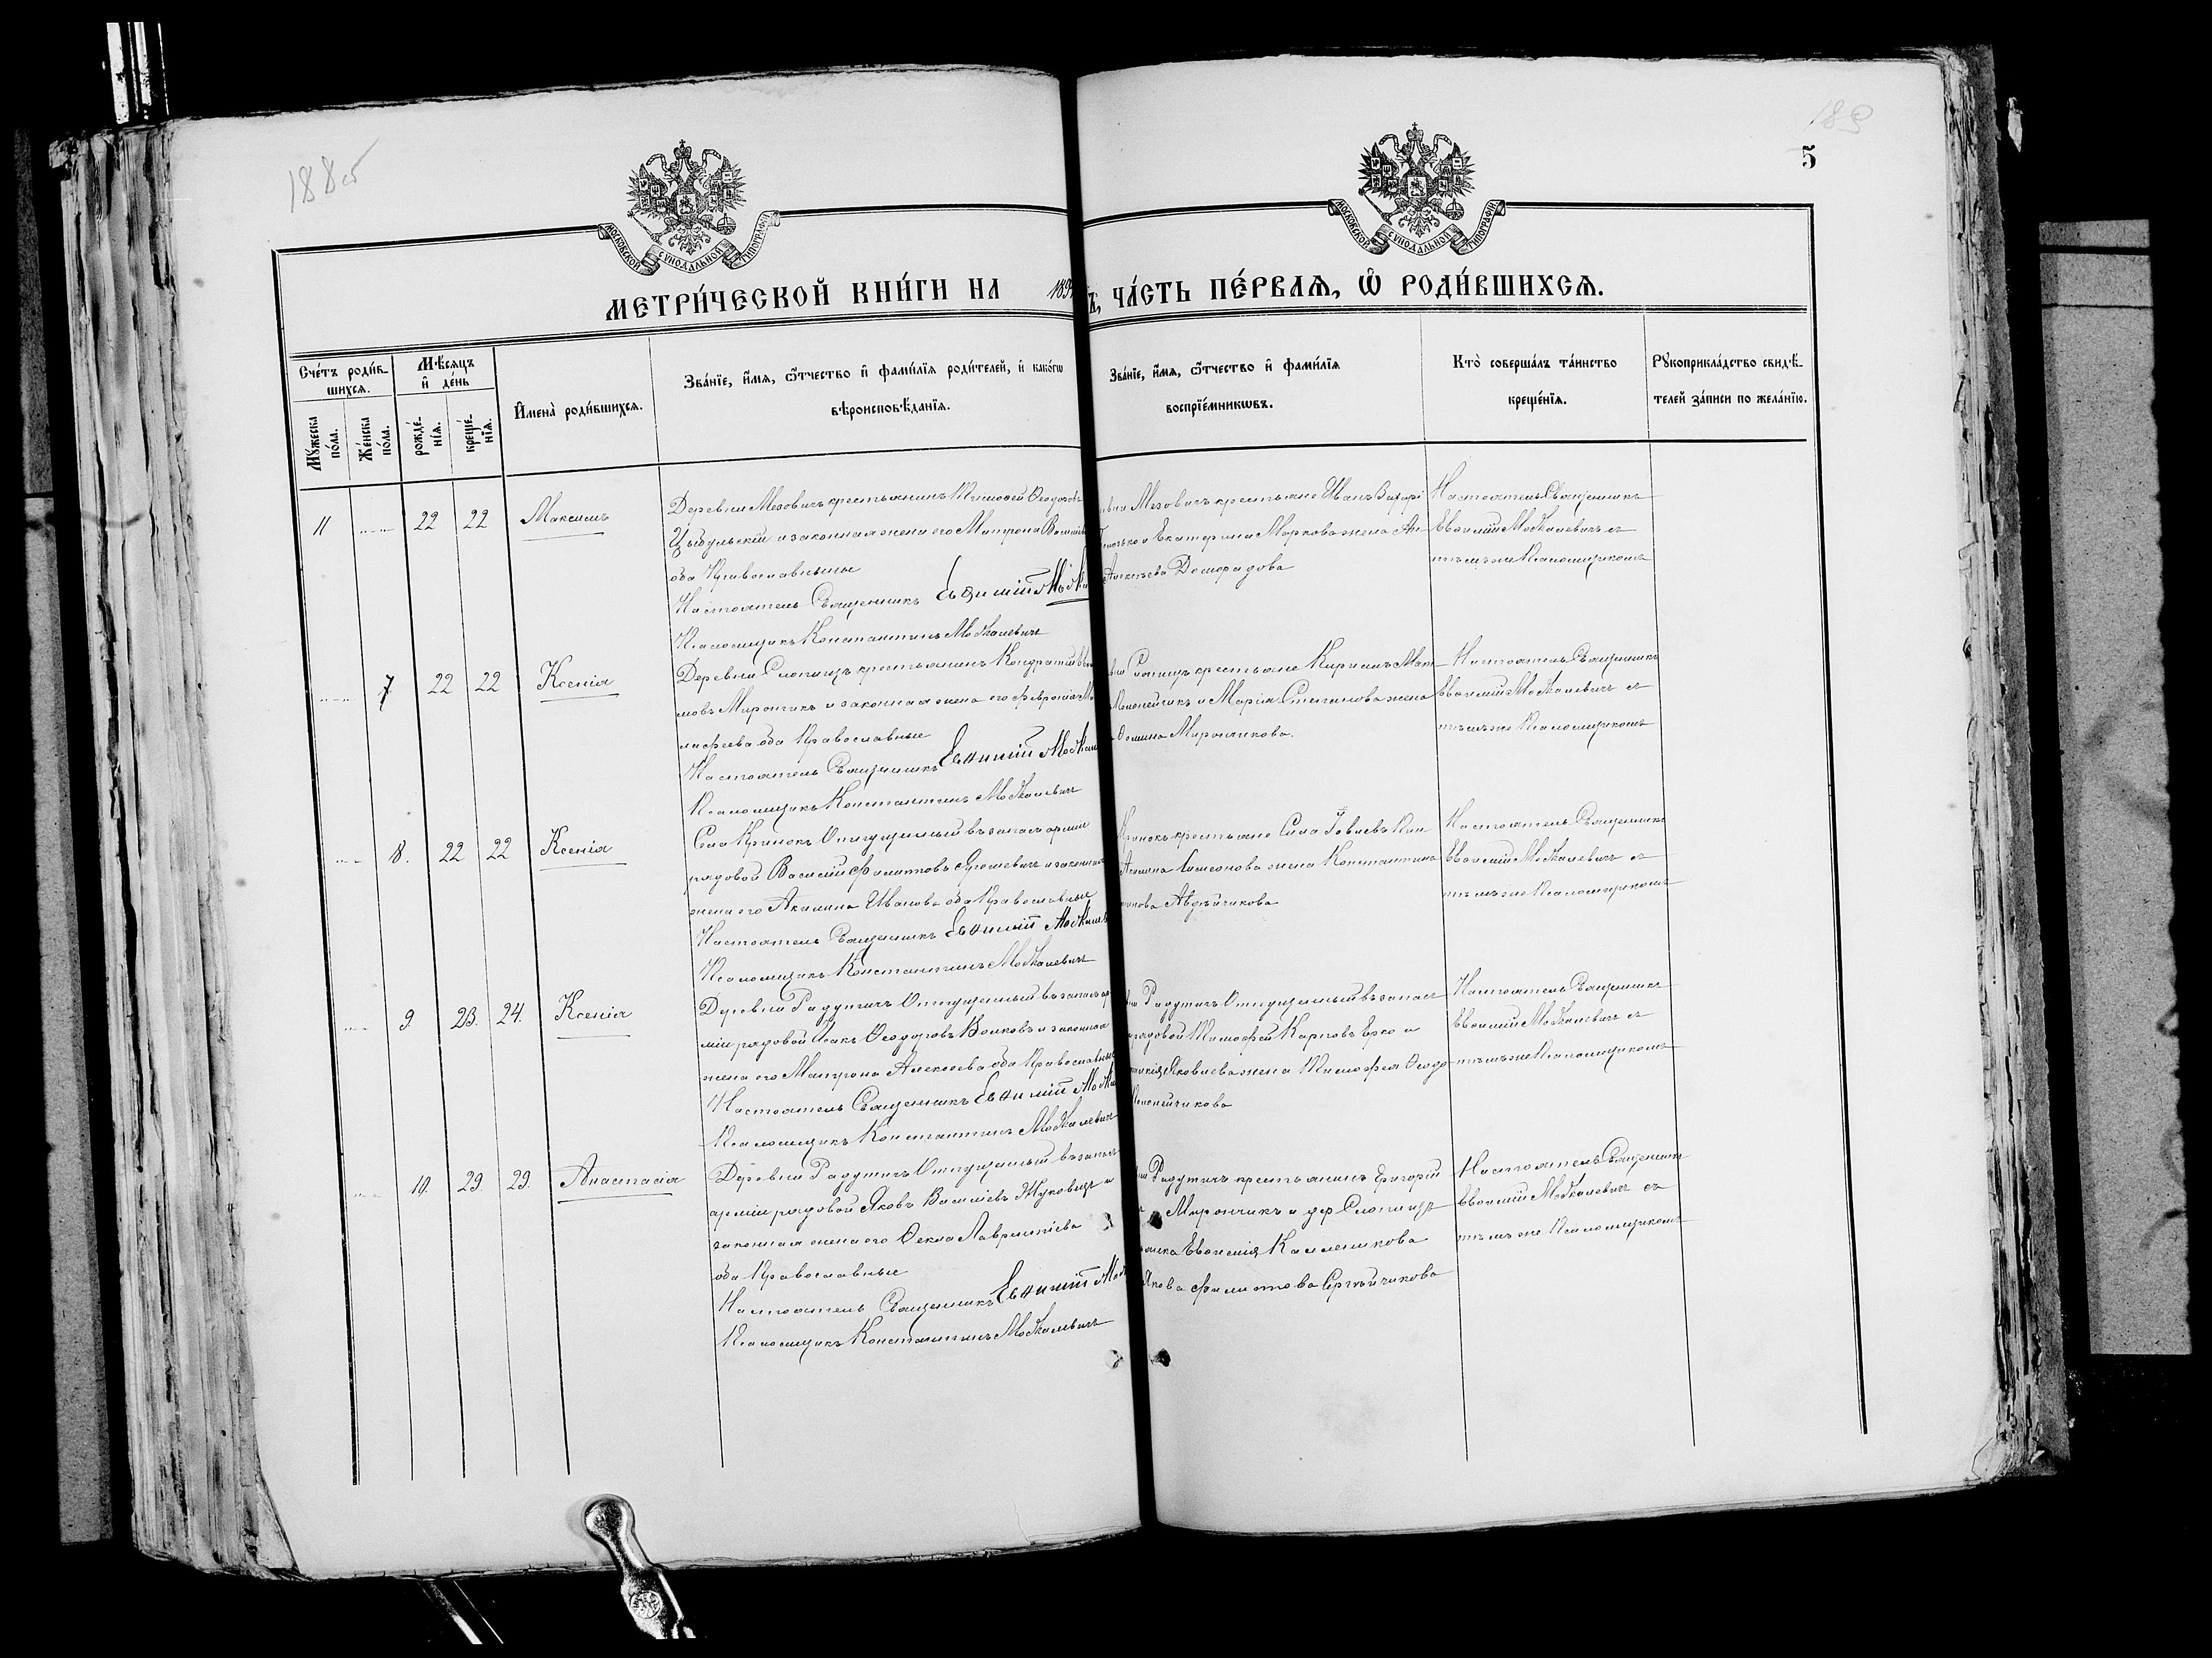 188об
189
5
МОСКОВСКОЙ СѴНОДАЛЬНОЙ ТИПОГРАФІИ
МОСКОВСКОЙ СѴНОДАЛЬНОЙ ТИПОГРАФІИ
МЕТРИ́ЧЕСКОЙ КНИ́ГИ НА 189
Ъ, ЧА́СТЬ ПЕ́РВАѦ, Ѡ РОДИ́ВШИХСѦ.
Сче́тъ роди́в-
шихсѧ.
Мꙋжеска по́ла.
Же́нска по́ла.
Мѣ́сѧцъ и҆ де́нь
рожде́-
нїѧ.
креще́-
нїѧ.
И҆мена̀ роди́вшихсѧ.
Зва́нїе, и҆́мѧ, ѻ҆́тчество и҆ фами́лїѧ роди́телей, и҆ како́гѡ
вѣроисповѣ́данїѧ.
Зва́нїе, и҆́мѧ, ѻ҆́тчество и҆ фами́лїѧ
воспрїе́мникѡвъ.
Кто̀ соверша́лъ та́инство
креще́нїѧ.
Рꙋкоприкла́дство свидѣ́-
телей за́писи по жела́нїю.
11 22 22 Максимъ
Деревни Мезовичъ крестьянинъ Тимоѳей Ѳеодоровъ
Цыбульскій и законная жена его Матрона
оба Православные
Настоятель Священникъ Евѳимій
Псаломщикъ Константинъ Москалевичъ
Мезовичъ крестьяне Иванъ
и Екатерина Маркова жена Ан-
Доморадова
Настоятель Священникъ
Евѳимій Москалевичъ съ
тѣмъ же Псаломщикомъ
7 22 22 Ксенія
Деревни Слопищъ крестьянинъ Кондратій
мовъ Мирончикъ и законная жена его Февронія
оба Православные
Настоятель Священникъ Евѳимій
Псаломщикъ Константинъ Москалевичъ
крестьяне
и Марія Степанова жена
Мирончикова.
Настоятель Священникъ
Евѳимій Москалевичъ съ
тѣмъ же Псаломщикомъ
8. 22 22 Ксенія
Села Кринокъ Отпущенный въ запасъ арміи
рядовой Василій Филиповъ и законная
жена его Акилина Иванова оба Православные
Настоятель Священникъ Евѳимій
Псаломщикъ Константинъ Москалевичъ
крестьяне
Симеонова жена Константина
Авдѣйчикова
Настоятель Священникъ
Евѳимій Москалевичъ съ
тѣмъ же Псаломщикомъ
9. 23. 24. Ксенія
Деревни Радутичъ Отпущенный въ запасъ ар
міи рядовой Исакъ Ѳеодоровъ Волковъ и законная
жена его Матрона Алексѣева оба Православные
Настоятель Священникъ Евѳимій
Псаломщикъ Константинъ Москалевичъ
Радутичъ Отпущенный въ запасъ
рядовой Тимоѳей Карповъ Ерко и
Яковлева жена Тимоѳея Ѳеодо-
Настоятель Священникъ
Евѳимій Москалевичъ съ
тѣмъ же Псаломщикомъ
10. 29. 29. Анастасія
Деревни Радутичъ Отпущенный въ запасъ
арміи рядовой Яковъ Василіевъ Жуковецъ и
законная жена его Ѳекла
оба Православные
Настоятель Священникъ Евѳимій
Псаломщикъ Константинъ Москалевичъ
Радутичъ крестьянинъ Григорій
Мирончикъ и дер Слопищъ
Евѳимія
Якова Филипова Сергѣйчикова
Настоятель Священникъ
Евѳимій Москалевичъ съ
тѣмъ же Псаломщикомъ